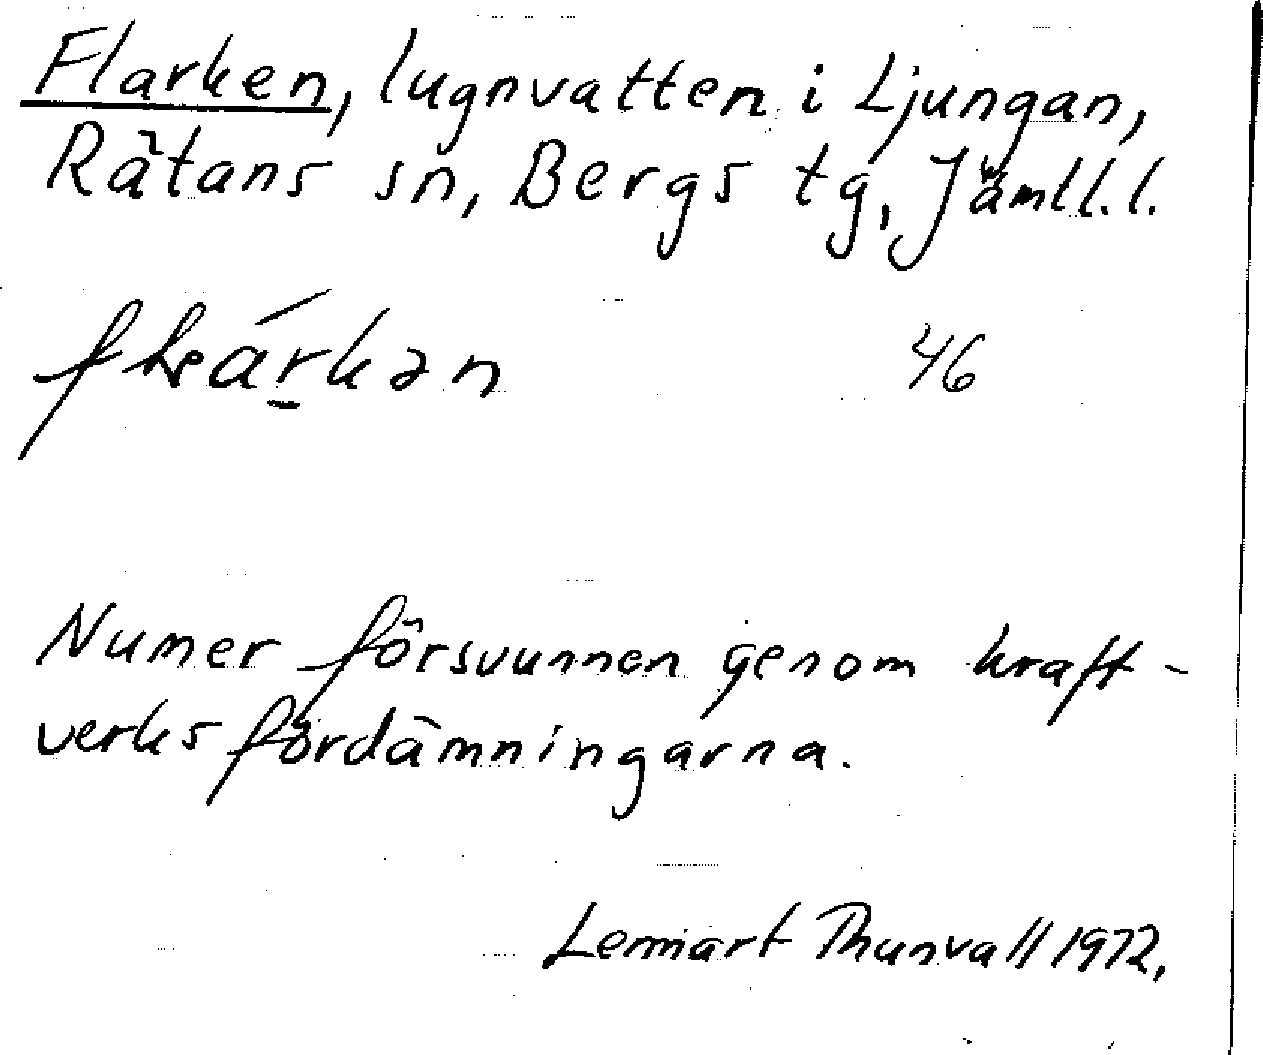 Flarken, lugnvatten i Ljungan,
Rätans sn, Bergs tg, Jämtl. l.
46
Numer försvunnen genom kraft-
verksfördämningarna.
Lennart Thunvall 1972.